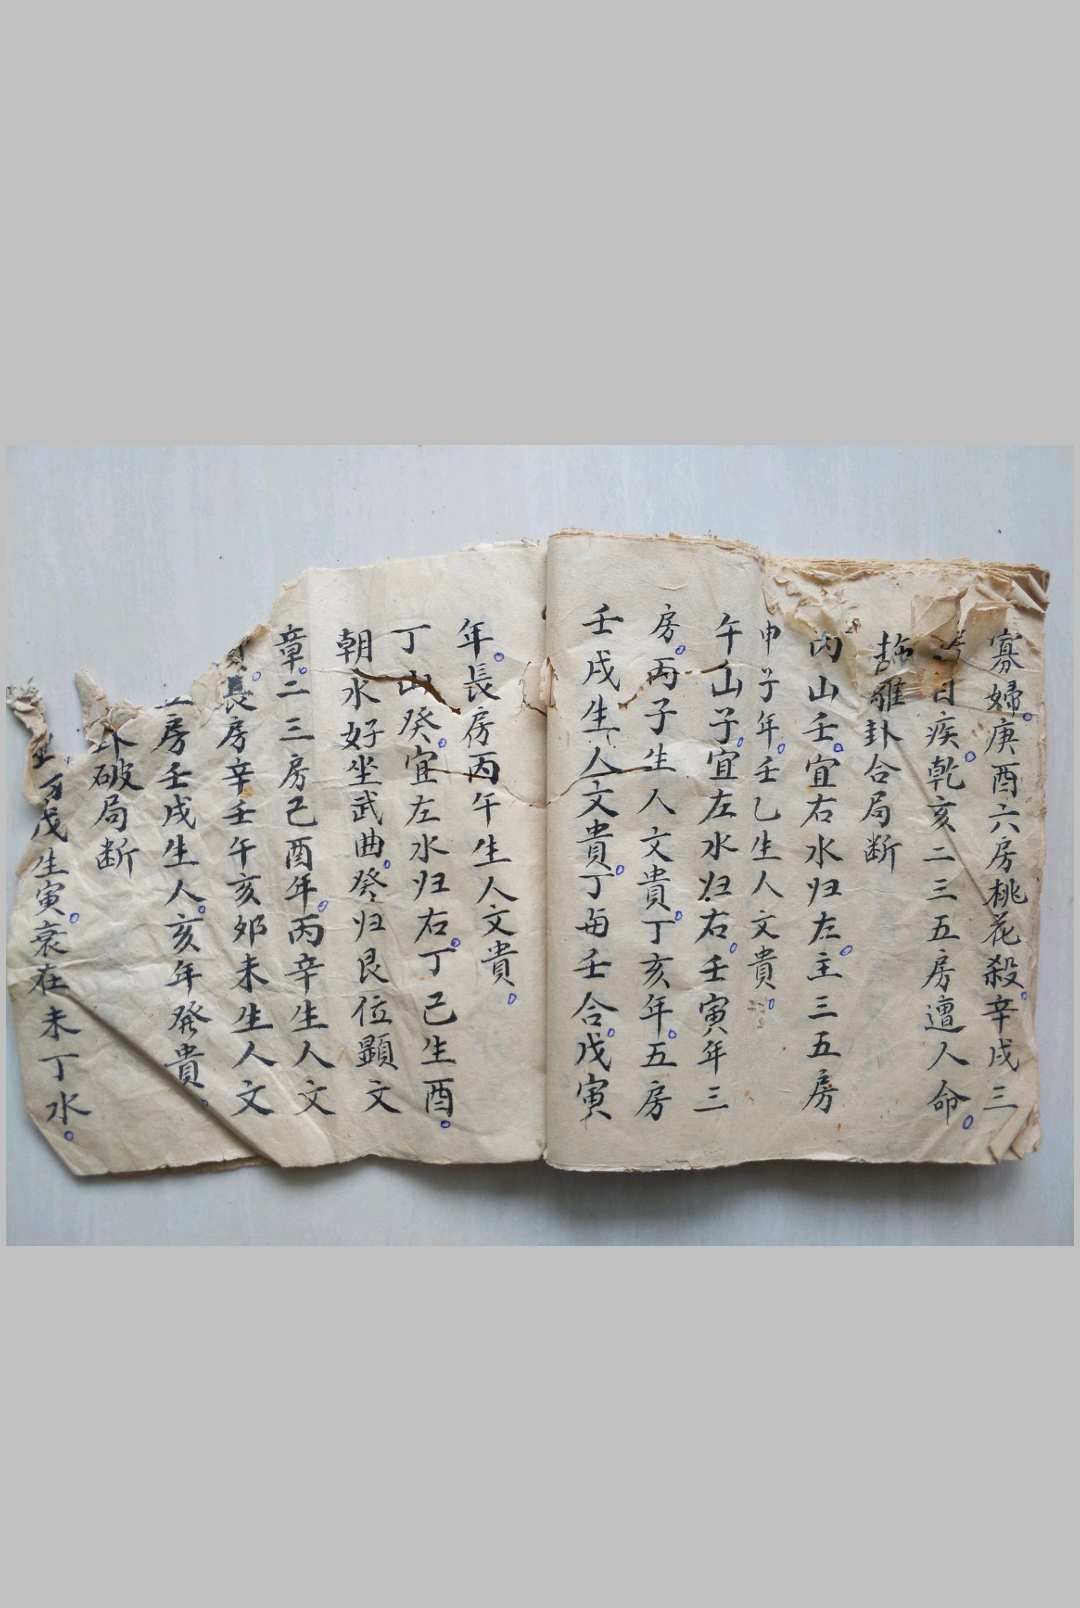 寡婦。庚酉六房桃花殺。辛戌三
目疾。乾亥二三五房遭人命。
離卦合局断
丙山壬。宜右水归左。主三五房
申子年。壬乙生人文貴。
午山子。宜左水归右。壬寅年三
房。丙子生人文貴。丁亥年。五房
壬戌生人文貴。丁每壬合。戊寅
年。長房丙午生人文貴。
丁山癸。宜左水归右。丁己生酉。
朝水好坐武曲。癸归艮位顯文
章。二三房己酉年。丙辛生人文
長房辛壬午亥夘未生人文
房壬戌生人。亥年発貴。
破局断
戊生寅。衰在未丁水。